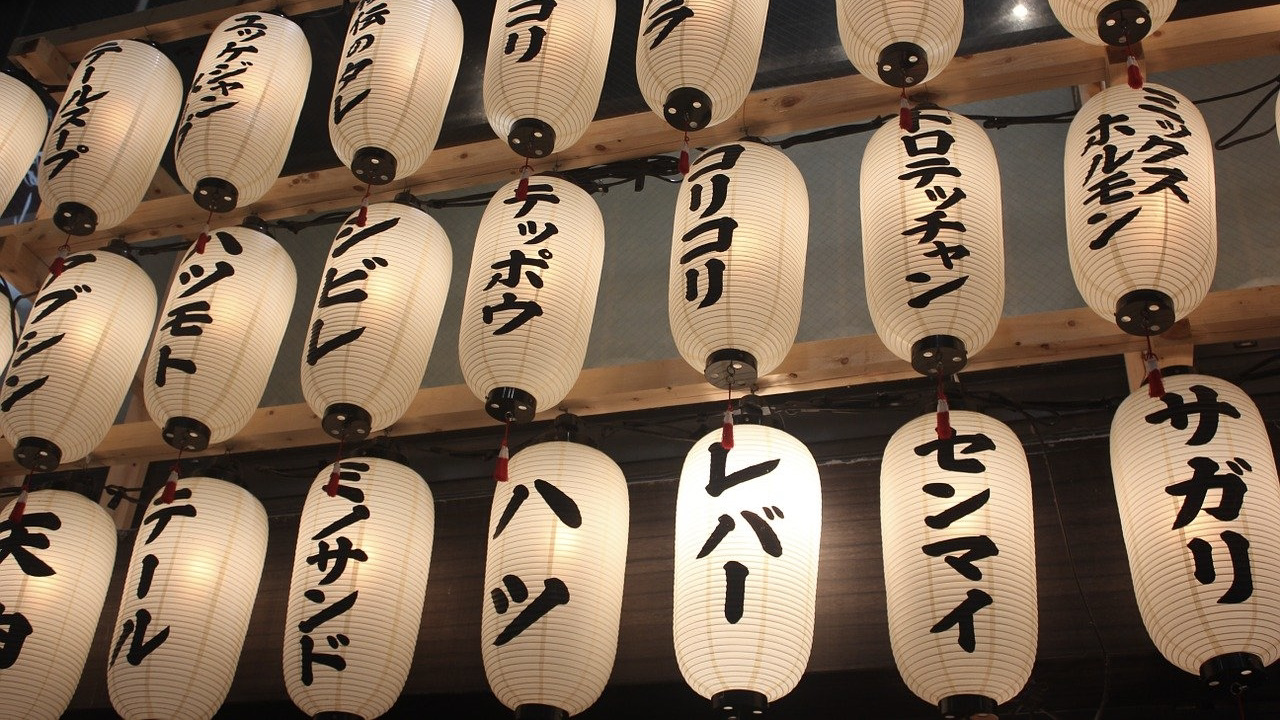 テールスープ
エッゲジャン
伝のタレ
コリ
ラ
グンン
ハツモト
シビレ
テッポウ
コリコリ
トロテッチャン
ミックス
ホルモン
テール
ミノサンド
ハツ
レバー
センマイ
サガリ